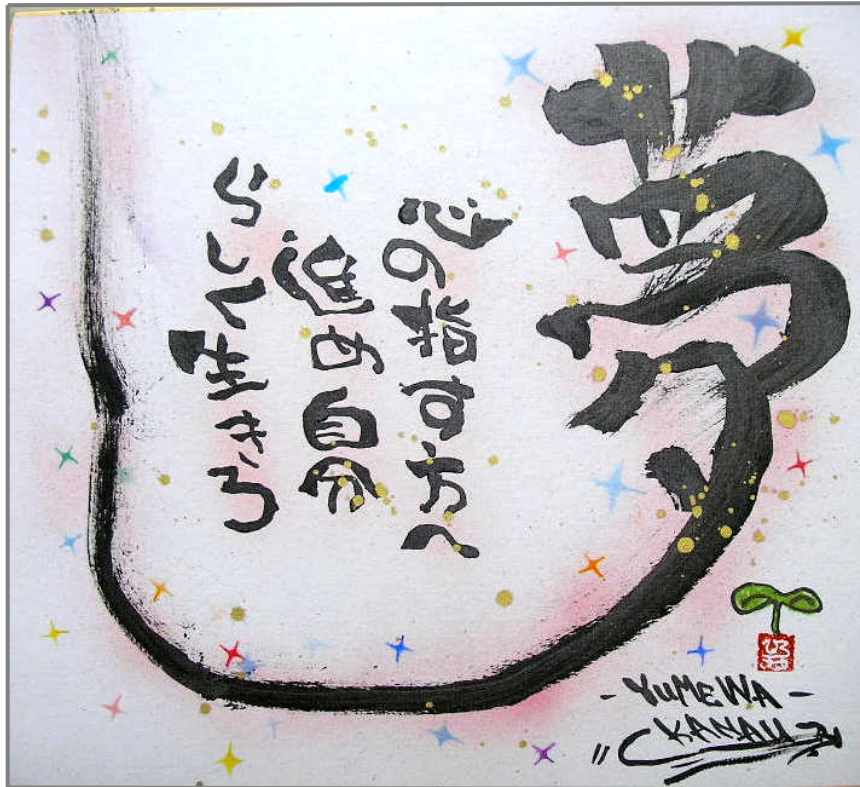 夢
心の指す方へ
進め自分
らしく生きろ
- YUMEWA -
KANAU